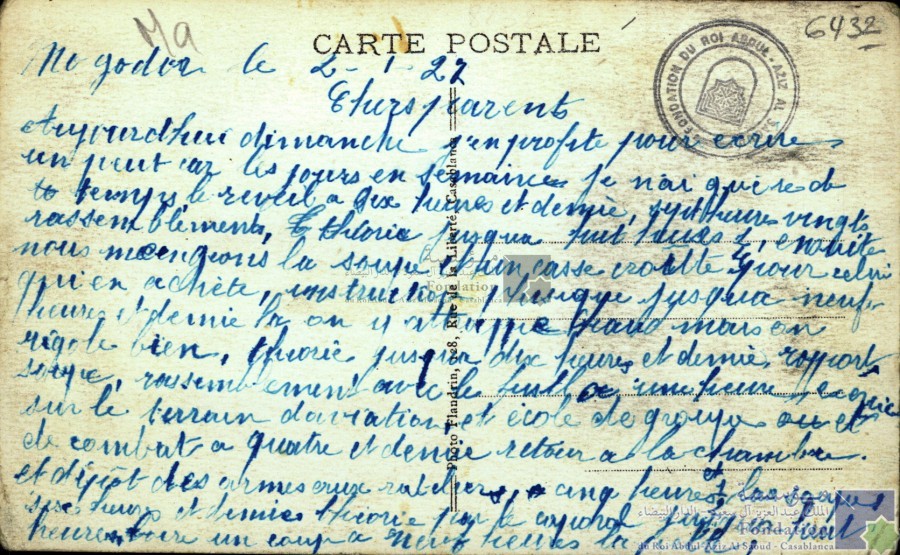 Ma
6432
CARTE POSTALE
FONDATION DU ROI ABDUL-AZIZ AL
Mogador le 2-1-27
Chers parents
Aujourdhui dimanche j'en profite pour ecrire
un peut car les jours en semaine je n'ai guere de
temps, le reveil a six heures et demie, sept heure vingts
rassemblements, théorie jusqua huit heures, ensuite
nous mangeons la soupe et un casse croutte pour celui
qui en achète, instruction jusqua neuf
heures et demie la on y attrappe chaud mais on
rigole bien, théorie jusqua dix heures et demie, rapport
soupe, rassemblement avec le fusil a une heure
sur le terrain d'aviation et école de groupe
de combat a quatre et demie retour a la chambre.
et dépot des armes aux rateliers, a cinq heures la soupe
six heures et demie théorie par le caporal jusqua huit
heures, boire un coup a neuf heures la
Photo Flandrin, 128, Rue de la Liberté, Casablanca
Fondation
Fondation
du Roi Abdul-Aziz Al Saoud - Casablanca